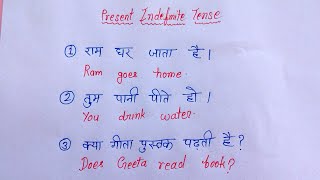 Present Indefinite Tense
① राम घर जाता है।
Ram goes home.
② तुम पानी पीते हो।
You drink water.
③ क्या गीता पुस्तक पढ़ती है?
Does Geeta read book?